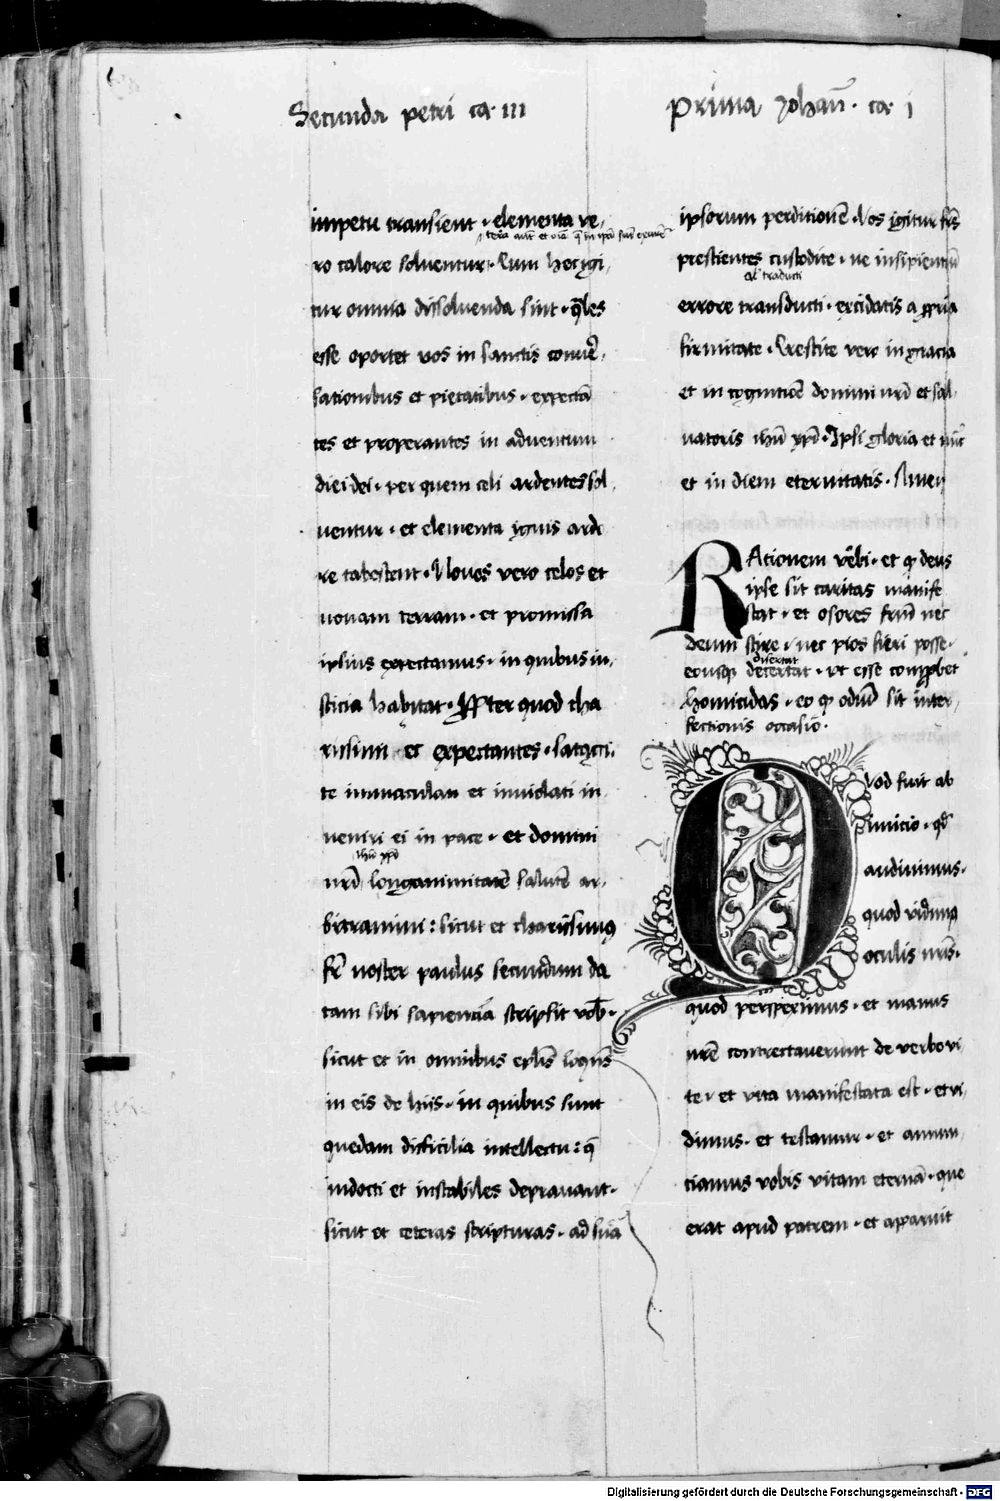 Secunda petri ca· III
Prima Johañ· ca· i
impetu transient · elementa ve-
ro calore solventur· Cum hec igi-
tur omnia dissoluenda sint · q̄les
esse oportet vos in sanctis conuer-
sationibus et pietatibus · expectā
tes et properantes in aduentum
diei dei · per quem celi ardentes sol-
uentur · et elementa ignis ardo
re tabescent · Nouos vero celos et
nouam terram · et promissa
ipsius expectamus · in quibus iu-
sticia habitat · Propter quod cha
rissimi et expectantes · satagi
te immaculati et inuiolati in-
ueniri ei in pace · et domini
ihū xpī
nrī longanimitatē salutē ar-
bitramini : sicut et charissimus
fr̄ noster paulus secundum da
tam sibi sapienciā scripsit vob̄ ·
sicut et in omnibus ep̄lis loquēs
in eis de hiis · in quibus sunt
quedam difficilia intellectu : q̄
indocti et instabiles deprauant ·
sicut et ceteras scripturas · ad suā
ipsorum perditionē · Vos igitur frēs
prescientes custodite · ne insipientiū
al' traducti
errore transducti · excidatis a ppria
firmitate · Crescite vero in gracia
et in cognitiōe domini nrī et sal-
uatoris ihū xpī · Ipsi gloria et nūc
et in diem eternitatis · Amen
RAtionem v̄bi · et q deus
ipse sit caritas manife
stat · et osores frūm nec
deum scire · nec pios fieri posse ·
disertat
eousq decertat · vt esse compbet
homicidas · eo q odiū sit inter-
fectionis occasio ·
QVod fuit ab
inicio · qd
audiuimus ·
quod vidimus
oculis nrīs ·
quod perspeximus · et manus
nrē contrectauerunt de verbo vi-
te · et vita manifestata est · et vi-
dimus · et testamur · et annun-
ciamus vobis vitam eternā · que
erat apud patrem · et aparuit
Digitalisierung gefördert durch die Deutsche Forschungsgemeinschaft - DFG